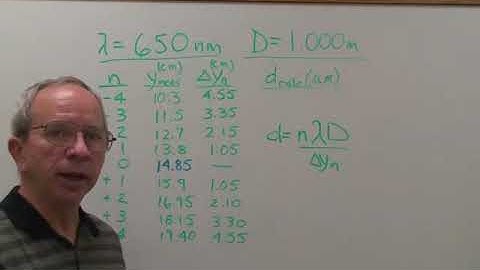 λ = 650 nm D = 1.000 m
n y meas (cm) Δyn (cm) d calc (mm)
-4 10.3 4.55
3 11.5 3.35
2 12.7 2.15
1 13.8 1.05
0 14.85 —
+1 15.9 1.05
+2 16.95 2.10
+3 18.15 3.30
4 19.40 4.55
d = nλD / Δyn